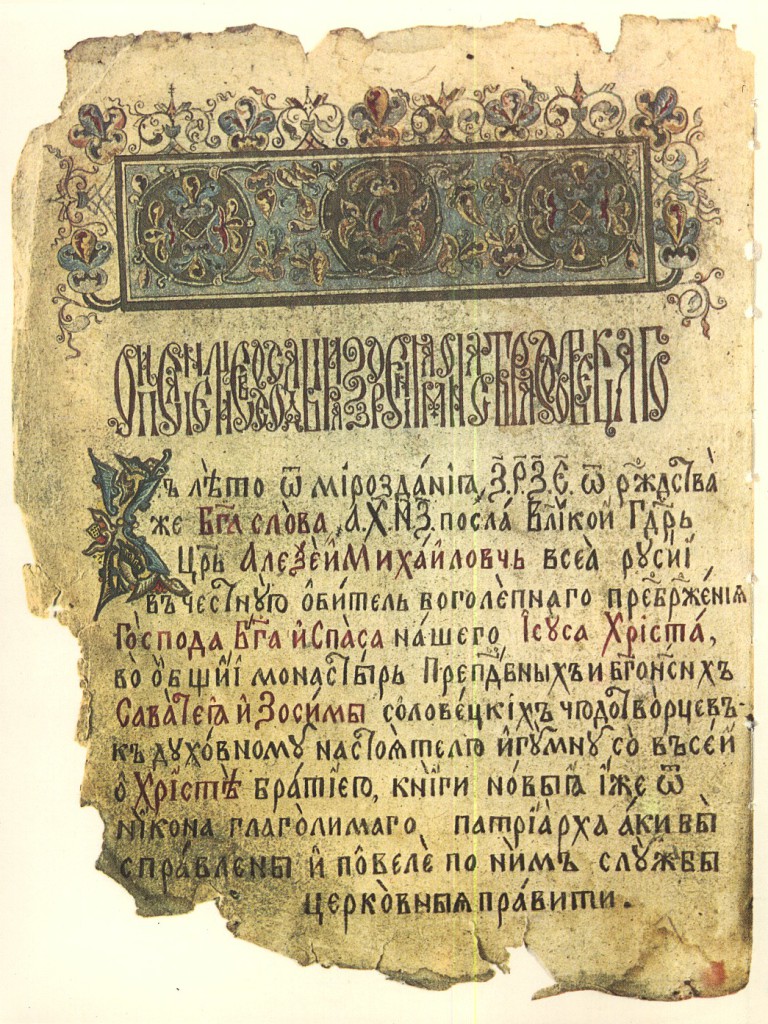 Въ лѣто ѿ мірозда́нїꙗ, З҃.Р҃.Ѯ҃.Є҃. ѿ рж҃дства̀
же Бг҃а сло́ва, ҂А.Х҃.Н҃З. посла̀ Вели́кой Гдⷭ҇рь
Цр҃ь Алеѯе́й Миха́йловчь всеѧ̀ русїи
въ честну́ю ѻ҆би́тель боголѣпнаго преѻбрⷤе́нїѧ
Го́спода Бг҃а и҆ Спа́са на́шего, І҆су́са Хрїста̀,
во ѻ҆́бщїй монасты́рь Преп҃дбныхъ и бг҃оно́сныхъ
Сава́тегѧ и҆ Зоси́мы солове́цкїхъ чюдотво́рцевъ.
къ духо́вному настоѧ́телю и҆гу́мну со въсе́й
ѻ҆ Хрїстѣ̀ бра́тїею, кни́ги но́выѧ і҆́же ѿ
ни́кона глаго́лимаго патрїа́рха а́ки бы̀
спра́влены и҆ повелѐ по ни́мъ слу́жбы
церко́вныѧ пра́вити.